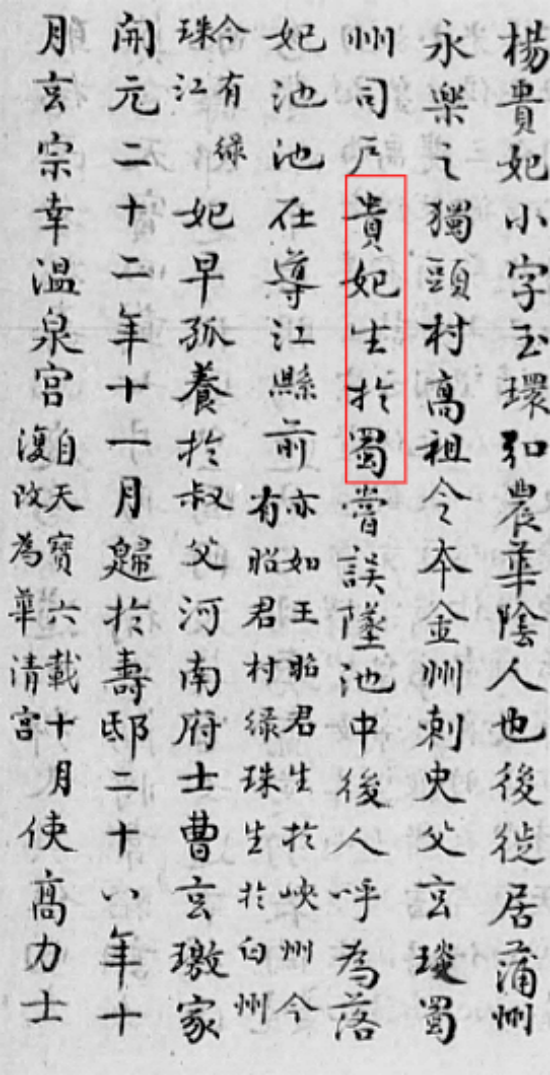 楊貴妃小字玉環弘農華陰人也後徙居蒲州
永樂之獨頭村高祖令本金州刺史父玄琰蜀
州司戶貴妃生於蜀嘗誤墜池中後人呼為落
妃池池在導江縣前亦如王昭君生於峽州今有昭君村綠珠生於白州
今有綠珠江妃早孤養於叔父河南府士曹玄璬家
開元二十二年十一月歸於壽邸二十八年十
月玄宗幸溫泉宮自天寶六載十月復改為華清宮使高力士